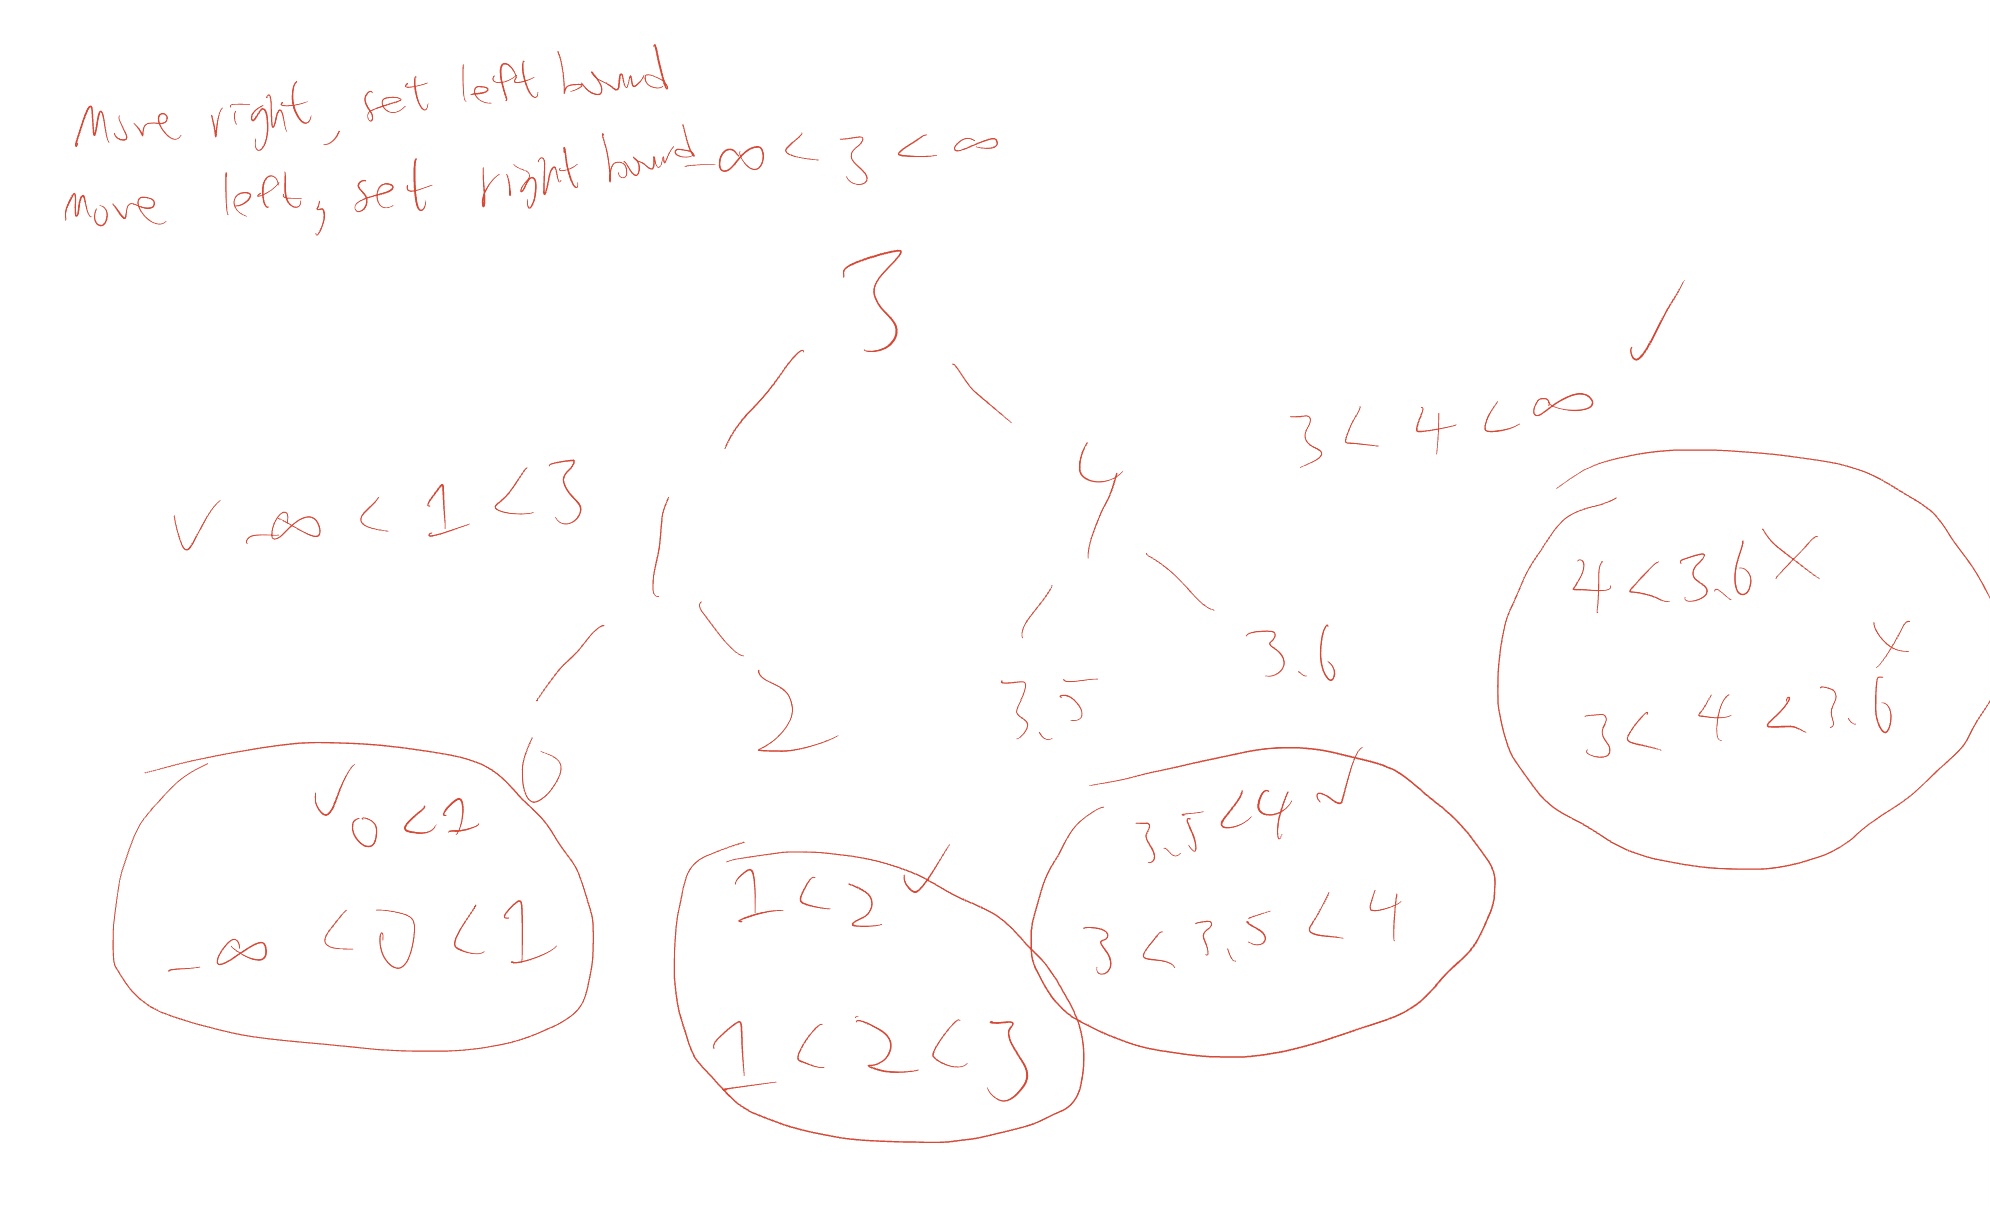 Move right, set left bound
Move left, set right bound
-∞ < 3 < ∞
3
✓
3 < 4 < ∞
✓ -∞ < 1 < 3
1
4
4 < 3.6 X
X
3 < 4 < 3.6
0
2
3.5
3.6
✓ 0 < 1
-∞ < 0 < 1
1 < 2 ✓
1 < 2 < 3
3.5 < 4 ✓
3 < 3.5 < 4